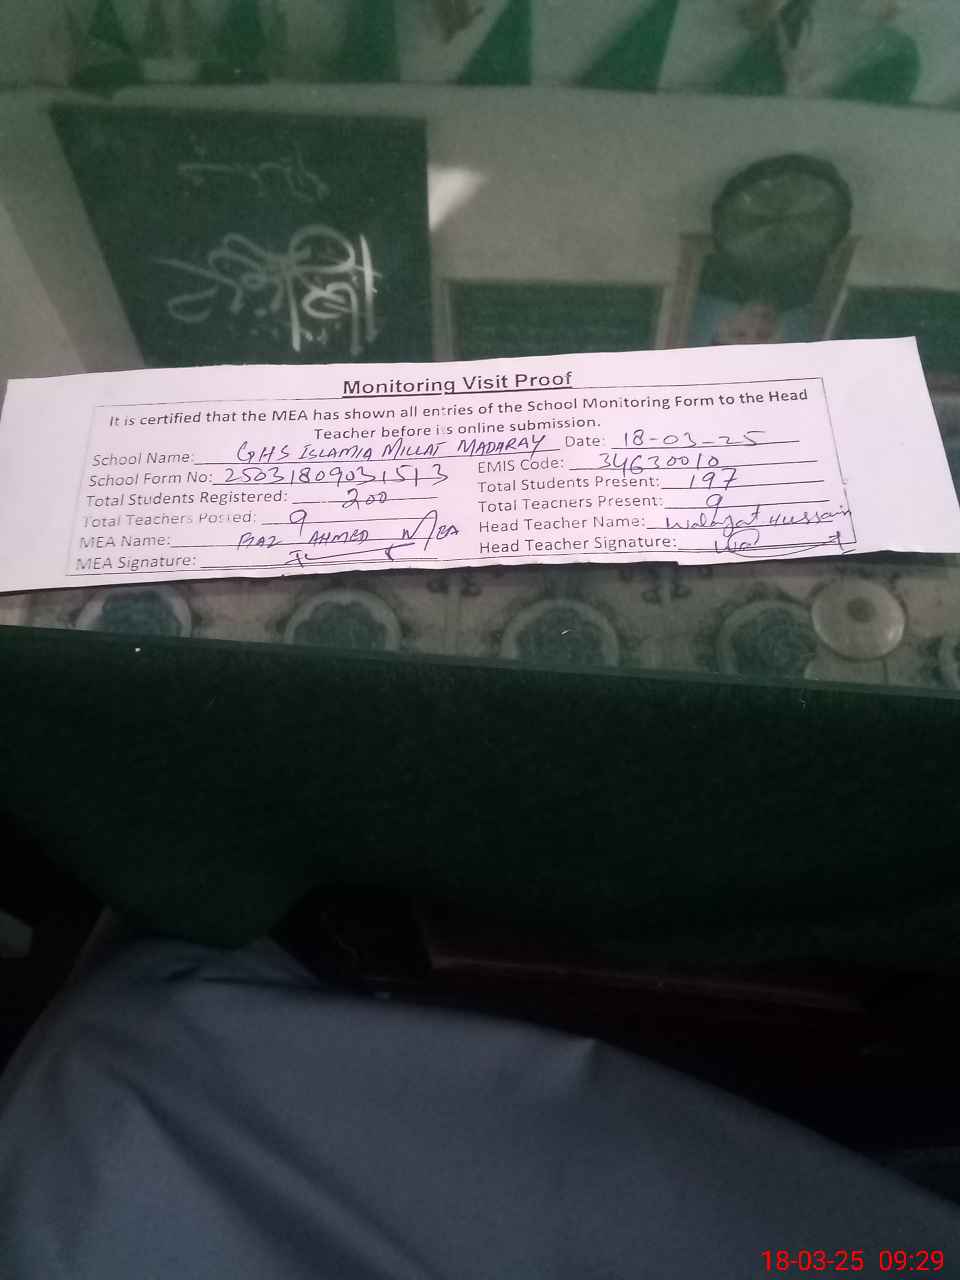 Monitoring Visit Proof
It is certified that the MEA has shown all entries of the School Monitoring Form to the Head
Teacher before its online submission.
School Name: GHS ISLAMIA MILLAT MADARAY Date: 18-03-25
School Form No: 25031809031513 EMIS Code: 34630010
Total Students Registered: 200 Total Students Present: 197
Total Teachers Posted: 9 Total Teachers Present: 9
MEA Name: AHMED Head Teacher Name: Walayat Hussain
MEA Signature: Head Teacher Signature:
18-03-25 09:29